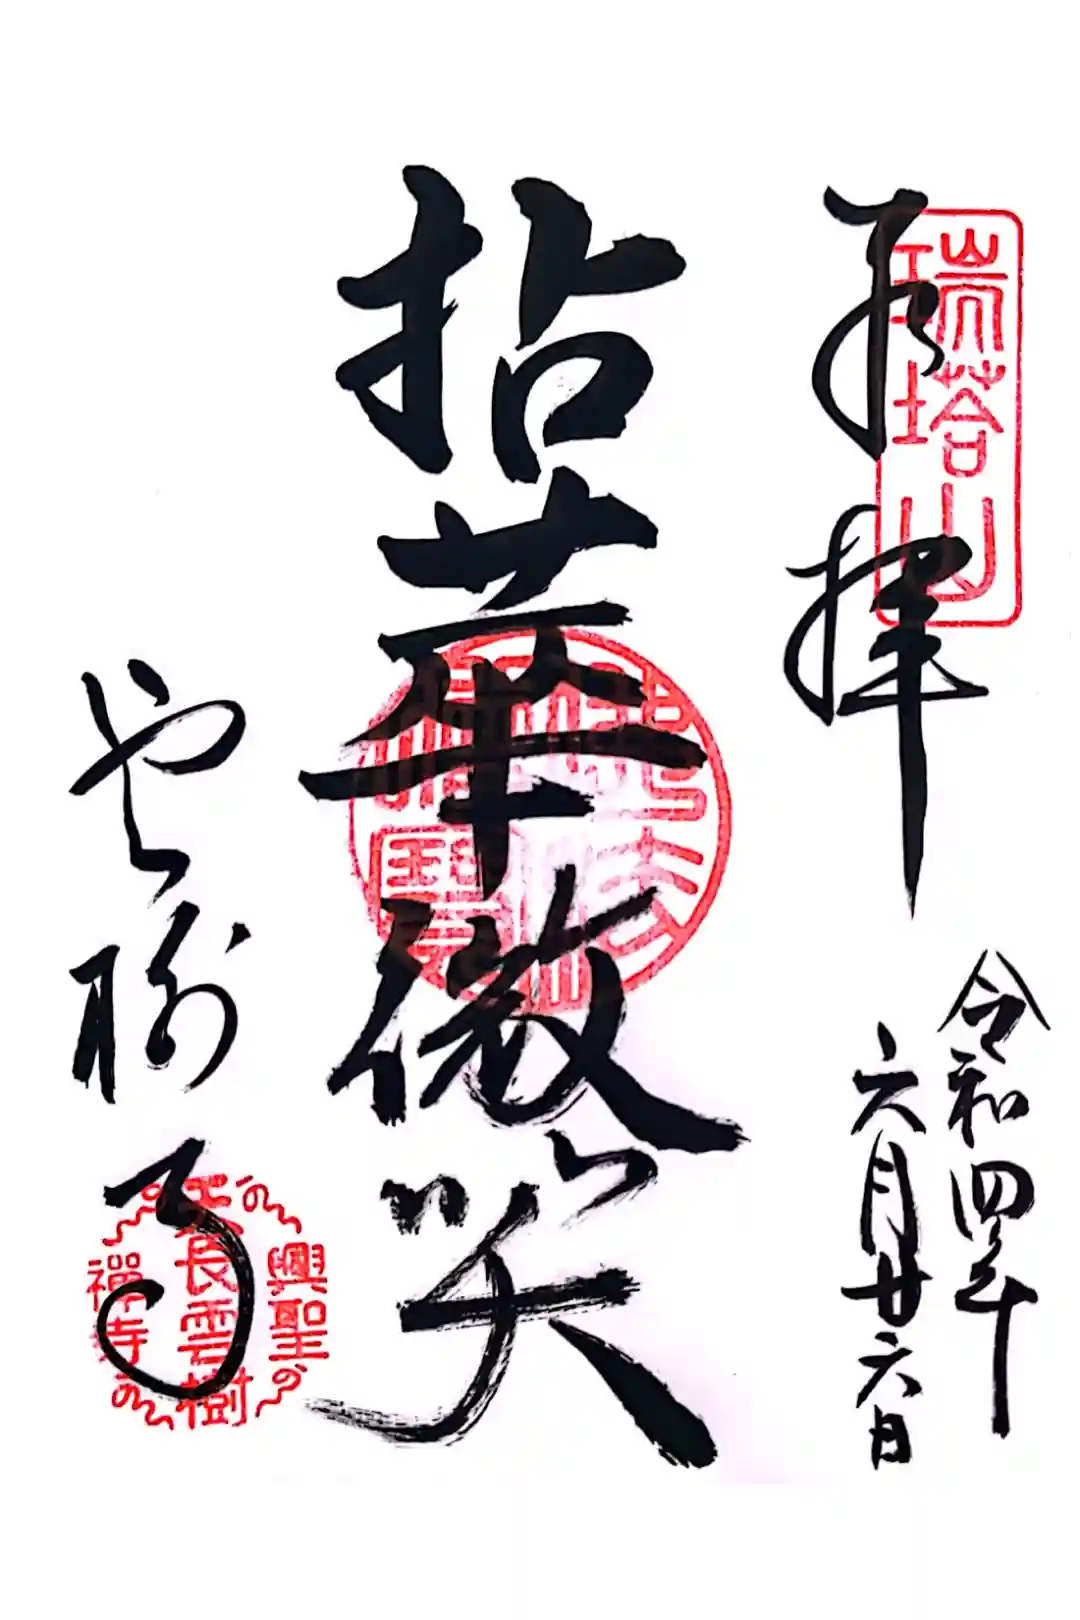 奉拝
瑞塔山
令和四年
六月廿六日
拈華微笑
雲樹寺
興聖
長雲樹
禅寺